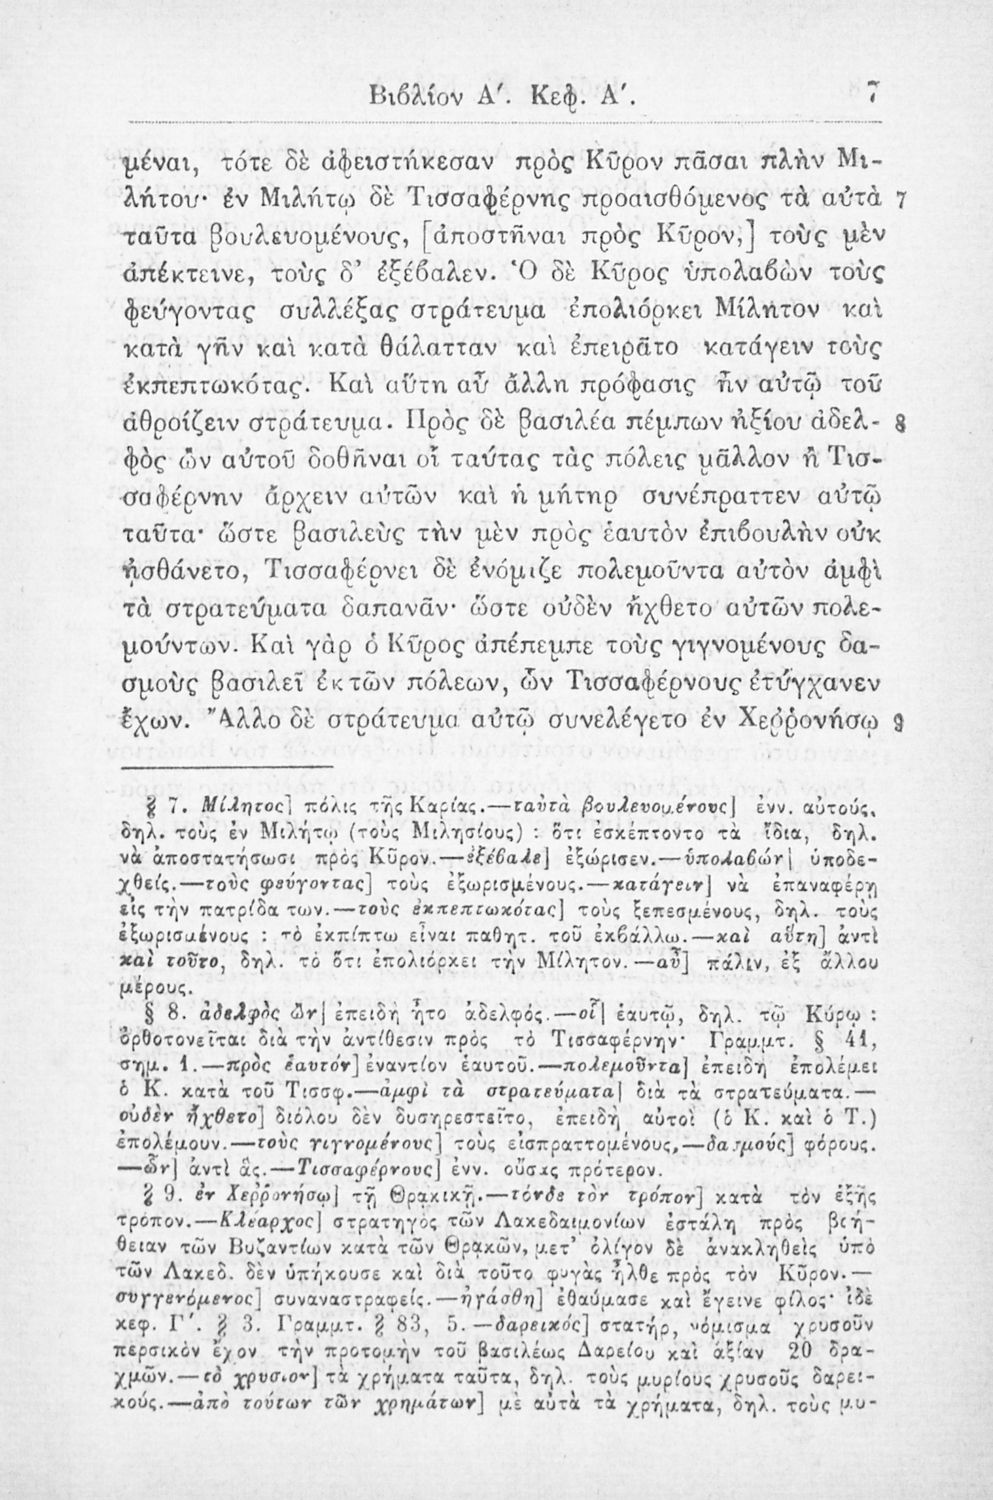 Βιβλίον Α΄. Κεφ. Α΄. 7
μέναι, τότε δὲ ἀφειστήκεσαν πρὸς Κῦρον πᾶσαι πλὴν Μι-
λήτου· ἐν Μιλήτῳ δὲ Τισσαφέρνης προαισθόμενος τὰ αὐτὰ 7
ταῦτα βουλευομένους, [ἀποστῆναι πρὸς Κῦρον,] τοὺς μὲν
ἀπέκτεινε, τοὺς δ’ ἐξέβαλεν. Ὁ δὲ Κῦρος ὑπολαβὼν τοὺς
φεύγοντας συλλέξας στράτευμα ἐπολιόρκει Μίλητον καὶ
κατὰ γῆν καὶ κατὰ θάλατταν καὶ ἐπειρᾶτο κατάγειν τοὺς
ἐκπεπτωκότας. Καὶ αὕτη αὖ ἄλλη πρόφασις ἦν αὐτῷ τοῦ
ἀθροίζειν στράτευμα. Πρὸς δὲ βασιλέα πέμπων ἠξίου ἀδελ- 8
φὸς ὢν αὐτοῦ δοθῆναι οἷ ταύτας τὰς πόλεις μᾶλλον ἢ Τισ-
σαφέρνην ἄρχειν αὐτῶν καὶ ἡ μήτηρ συνέπραττεν αὐτῷ
ταῦτα· ὥστε βασιλεὺς τὴν μὲν πρὸς ἑαυτὸν ἐπιβουλὴν οὐκ
ᾐσθάνετο, Τισσαφέρνει δὲ ἐνόμιζε πολεμοῦντα αὐτὸν ἀμφὶ
τὰ στρατεύματα δαπανᾶν· ὥστε οὐδὲν ἤχθετο αὐτῶν πολε-
μούντων. Καὶ γὰρ ὁ Κῦρος ἀπέπεμπε τοὺς γιγνομένους δα-
σμοὺς βασιλεῖ ἐκ τῶν πόλεων, ὧν Τισσαφέρνους ἐτύγχανεν
ἔχων. Ἄλλο δὲ στράτευμα αὐτῷ συνελέγετο ἐν Χερῤονήσῳ 9
§ 7. Μίλητος] πόλις τῆς Καρίας.—ταὐτὰ βουλευομένους] ἐνν. αὐτούς,
δηλ. τοὺς ἐν Μιλήτῳ (τοὺς Μιλησίους) : ὅτι ἐσκέπτοντο τὰ ἴδια, δηλ.
νὰ ἀποστατήσωσι πρὸς Κῦρον.—ἐξέβαλε] ἐξώρισεν.—ὑπολαβών] ὑποδε-
χθείς.—τοὺς φεύγοντας] τοὺς ἐξωρισμένους.—κατάγειν] νὰ ἐπαναφέρῃ
εἰς τὴν πατρίδα των.—τοὺς ἐκπεπτωκότας] τοὺς ξεπεσμένους, δηλ. τοὺς
ἐξωρισμένους : τὸ ἐκπίπτω εἶναι παθητ. τοῦ ἐκβάλλω.—καὶ αὕτη] ἀντὶ
καὶ τοῦτο, δηλ. τὸ ὅτι ἐπολιόρκει τὴν Μίλητον.—αὖ] πάλιν, ἐξ ἄλλου
μέρους.
§ 8. ἀδελφὸς ὢν] ἐπειδὴ ἦτο ἀδελφός.—οἷ] ἑαυτῷ, δηλ. τῷ Κύρῳ :
ὀρθοτονεῖται διὰ τὴν ἀντίθεσιν πρὸς τὸ Τισσαφέρνην· Γραμμτ. § 41,
σημ. 1.—πρὸς ἑαυτόν] ἐναντίον ἑαυτοῦ.—πολεμοῦντα] ἐπειδὴ ἐπολέμει
ὁ Κ. κατὰ τοῦ Τισσφ.—ἀμφὶ τὰ στρατεύματα] διὰ τὰ στρατεύματα.—
οὐδὲν ἤχθετο] διόλου δὲν δυσηρεστεῖτο, ἐπειδὴ αὐτοὶ (ὁ Κ. καὶ ὁ Τ.)
ἐπολέμουν.—τοὺς γιγνομένους] τοὺς εἰσπραττομένους,—δασμούς] φόρους.
—ὧν] ἀντὶ ἃς.—Τισσαφέρνους] ἐνν. οὔσας πρότερον.
§ 9. ἐν Χεῤῥονήσῳ] τῇ Θρακικῇ.—τόνδε τὸν τρόπον] κατὰ τὸν ἑξῆς
τρόπον.—Κλέαρχος] στρατηγὸς τῶν Λακεδαιμονίων ἐστάλη πρὸς βοή-
θειαν τῶν Βυζαντίων κατὰ τῶν Θρᾳκῶν, μετ’ ὀλίγον δὲ ἀνακληθεὶς ὑπὸ
τῶν Λακεδ. δὲν ὑπήκουσε καὶ διὰ τοῦτο φυγὰς ἦλθε πρὸς τὸν Κῦρον.—
συγγενόμενος] συναναστραφείς.—ἠγάσθη] ἐθαύμασε καὶ ἔγεινε φίλος· ἰδὲ
κεφ. Γ΄. § 3. Γραμμτ. § 83, 5.—δαρεικός] στατήρ, νόμισμα χρυσοῦν
περσικὸν ἔχον τὴν προτομὴν τοῦ βασιλέως Δαρείου καὶ ἀξίαν 20 δρα-
χμῶν.—τὸ χρυσίον] τὰ χρήματα ταῦτα, δηλ. τοὺς μυρίους χρυσοῦς δαρει-
κούς.—ἀπὸ τούτων τῶν χρημάτων] μὲ αὐτὰ τὰ χρήματα, δηλ. τοὺς μυ-